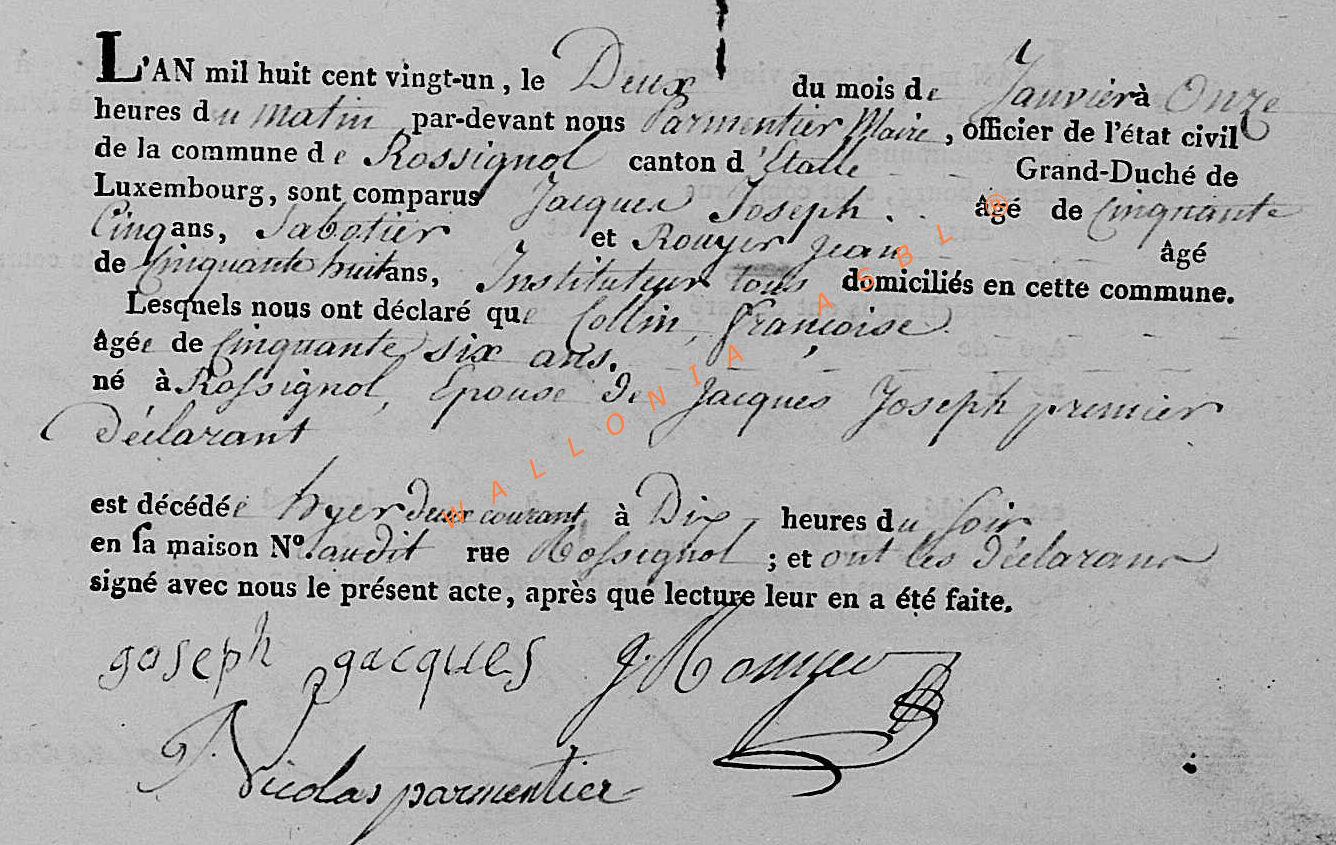 L'AN mil huit cent vingt-un, le Deux du mois de Janvier à Onze
heures du matin par-devant nous Parmentier Maire, officier de l'état civil
de la commune de Rossignol canton d'Etalle Grand-Duché de
Luxembourg, sont comparus Jacques Joseph. âgé de Cinquante
Cinq ans, Sabotier et Rouyer Jean âgé
de Cinquante huit ans, Instituteur tous domiciliés en cette commune.
Lesquels nous ont déclaré que Collin, Françoise
âgée de Cinquante six ans.
né à Rossignol, Epouse de Jacques Joseph premier
Déclarant
est décédée hyer deux courant, à Dix heures du soir
en sa maison N° audit rue Rossignol ; et ont les Déclarans
signé avec nous le présent acte, après que lecture leur en a été faite.
joseph jacques J Rouyer
Nicolas parmentier
WALLONIA ASBL ®